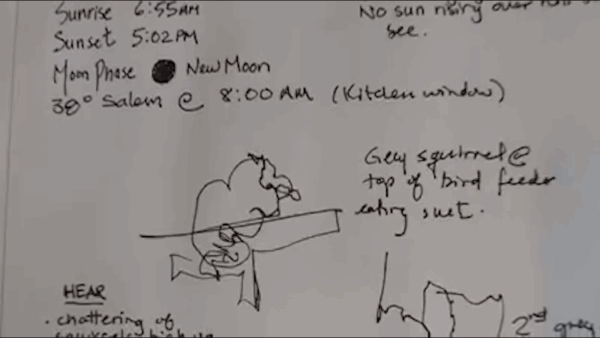 Sunrise 6:55AM
Sunset 5:02PM
Moon Phase New Moon
38° Salem @ 8:00 AM (Kitchen window)
No sun rising over
see.
Grey squirrel @
top of bird feeder
eating suet.
HEAR
· chattering of
2nd grey